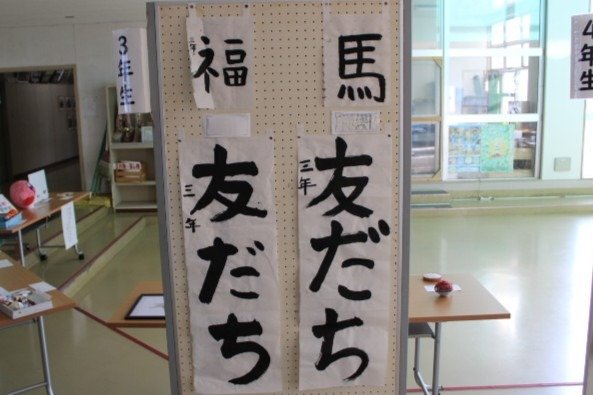 3年生
4年生
福
三年
馬
友だち
三年
友だち
三年